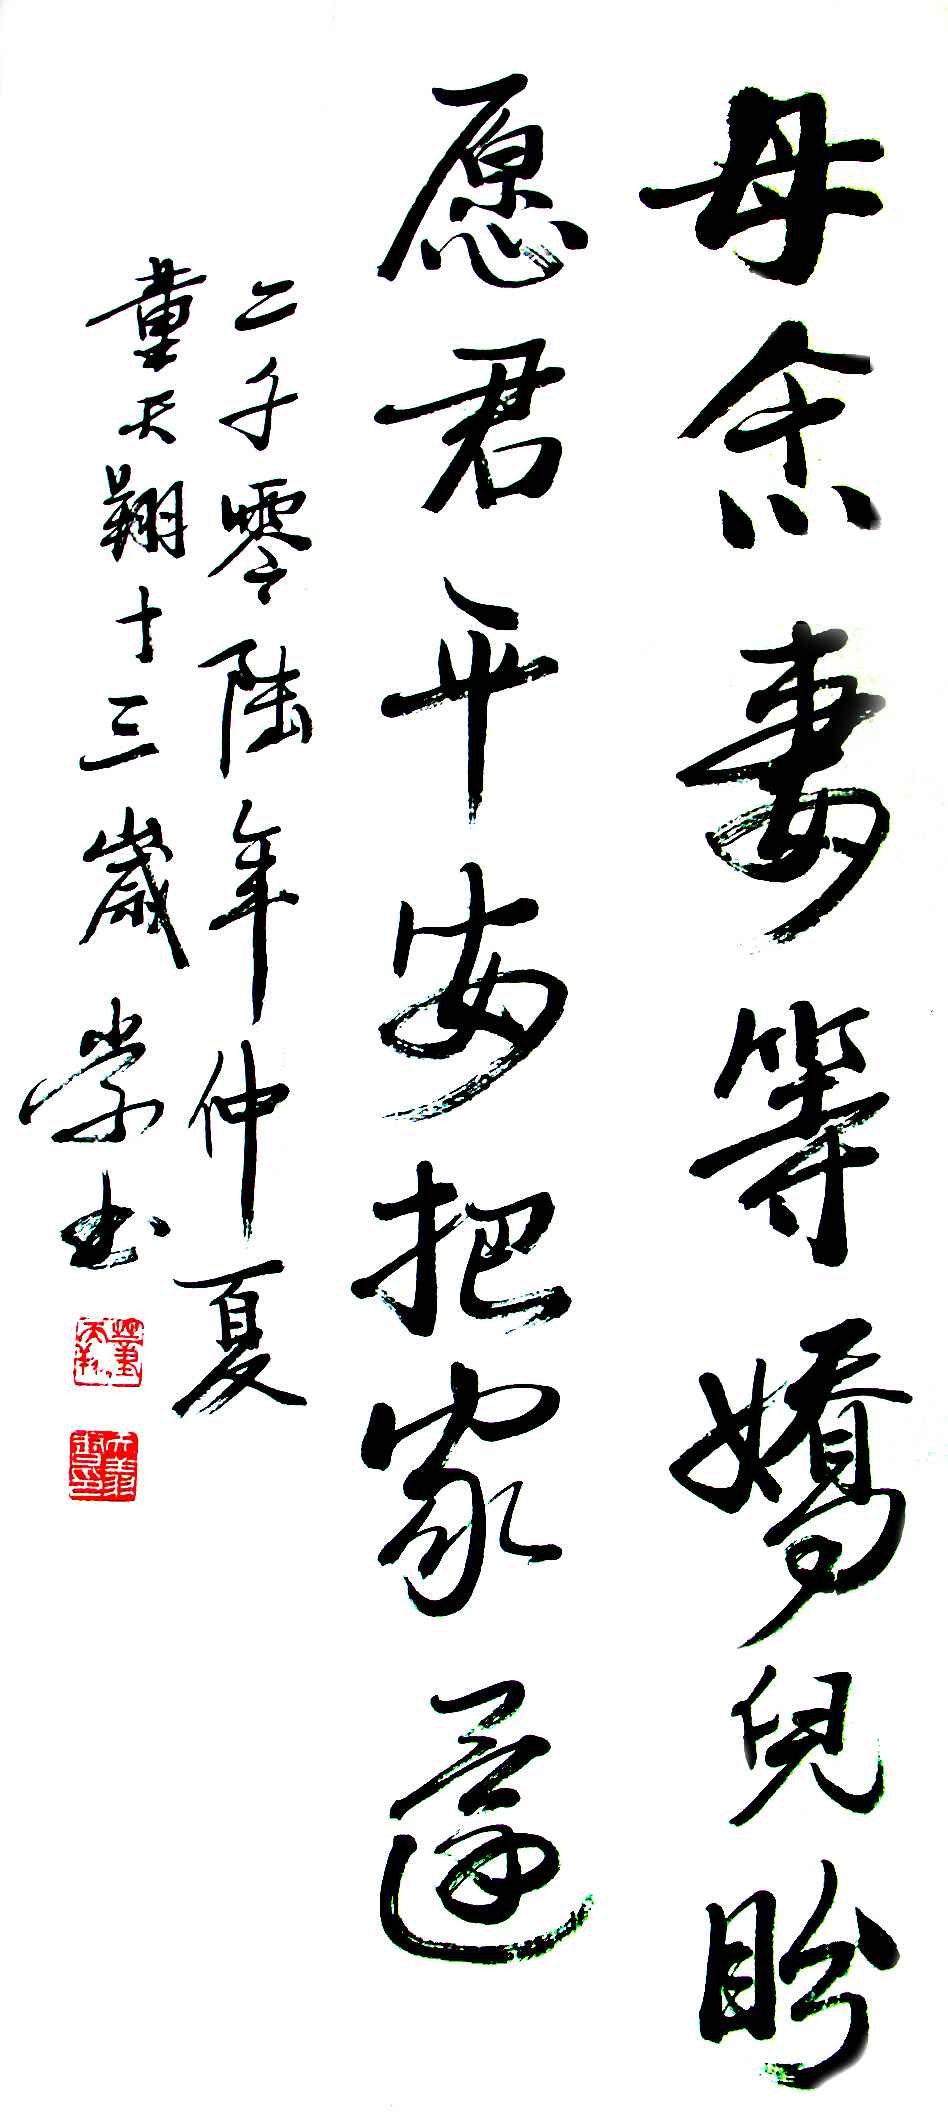 母念妻等嬌兒盼
愿君平安把家還
二千零陸年仲夏
董天翔十三歲学书
董天翔